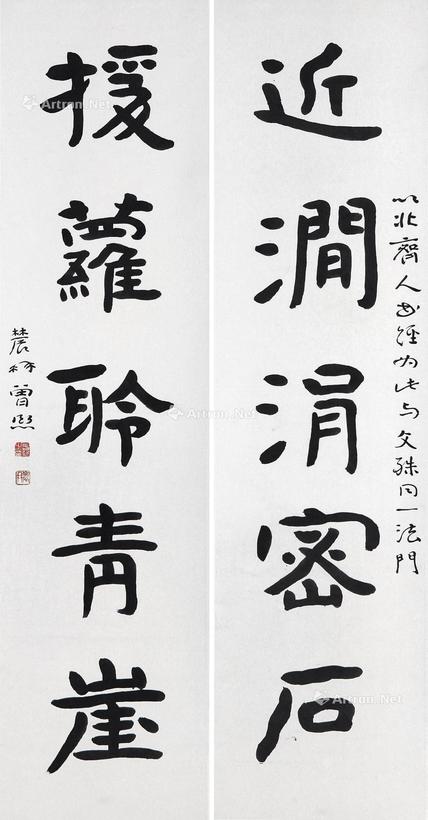 以北齊人書經為此与文殊同一法門
近澗涓密石
援蘿聆青崖
農髯曾熙
Artron.Net
Artron.Net
Artron.Net